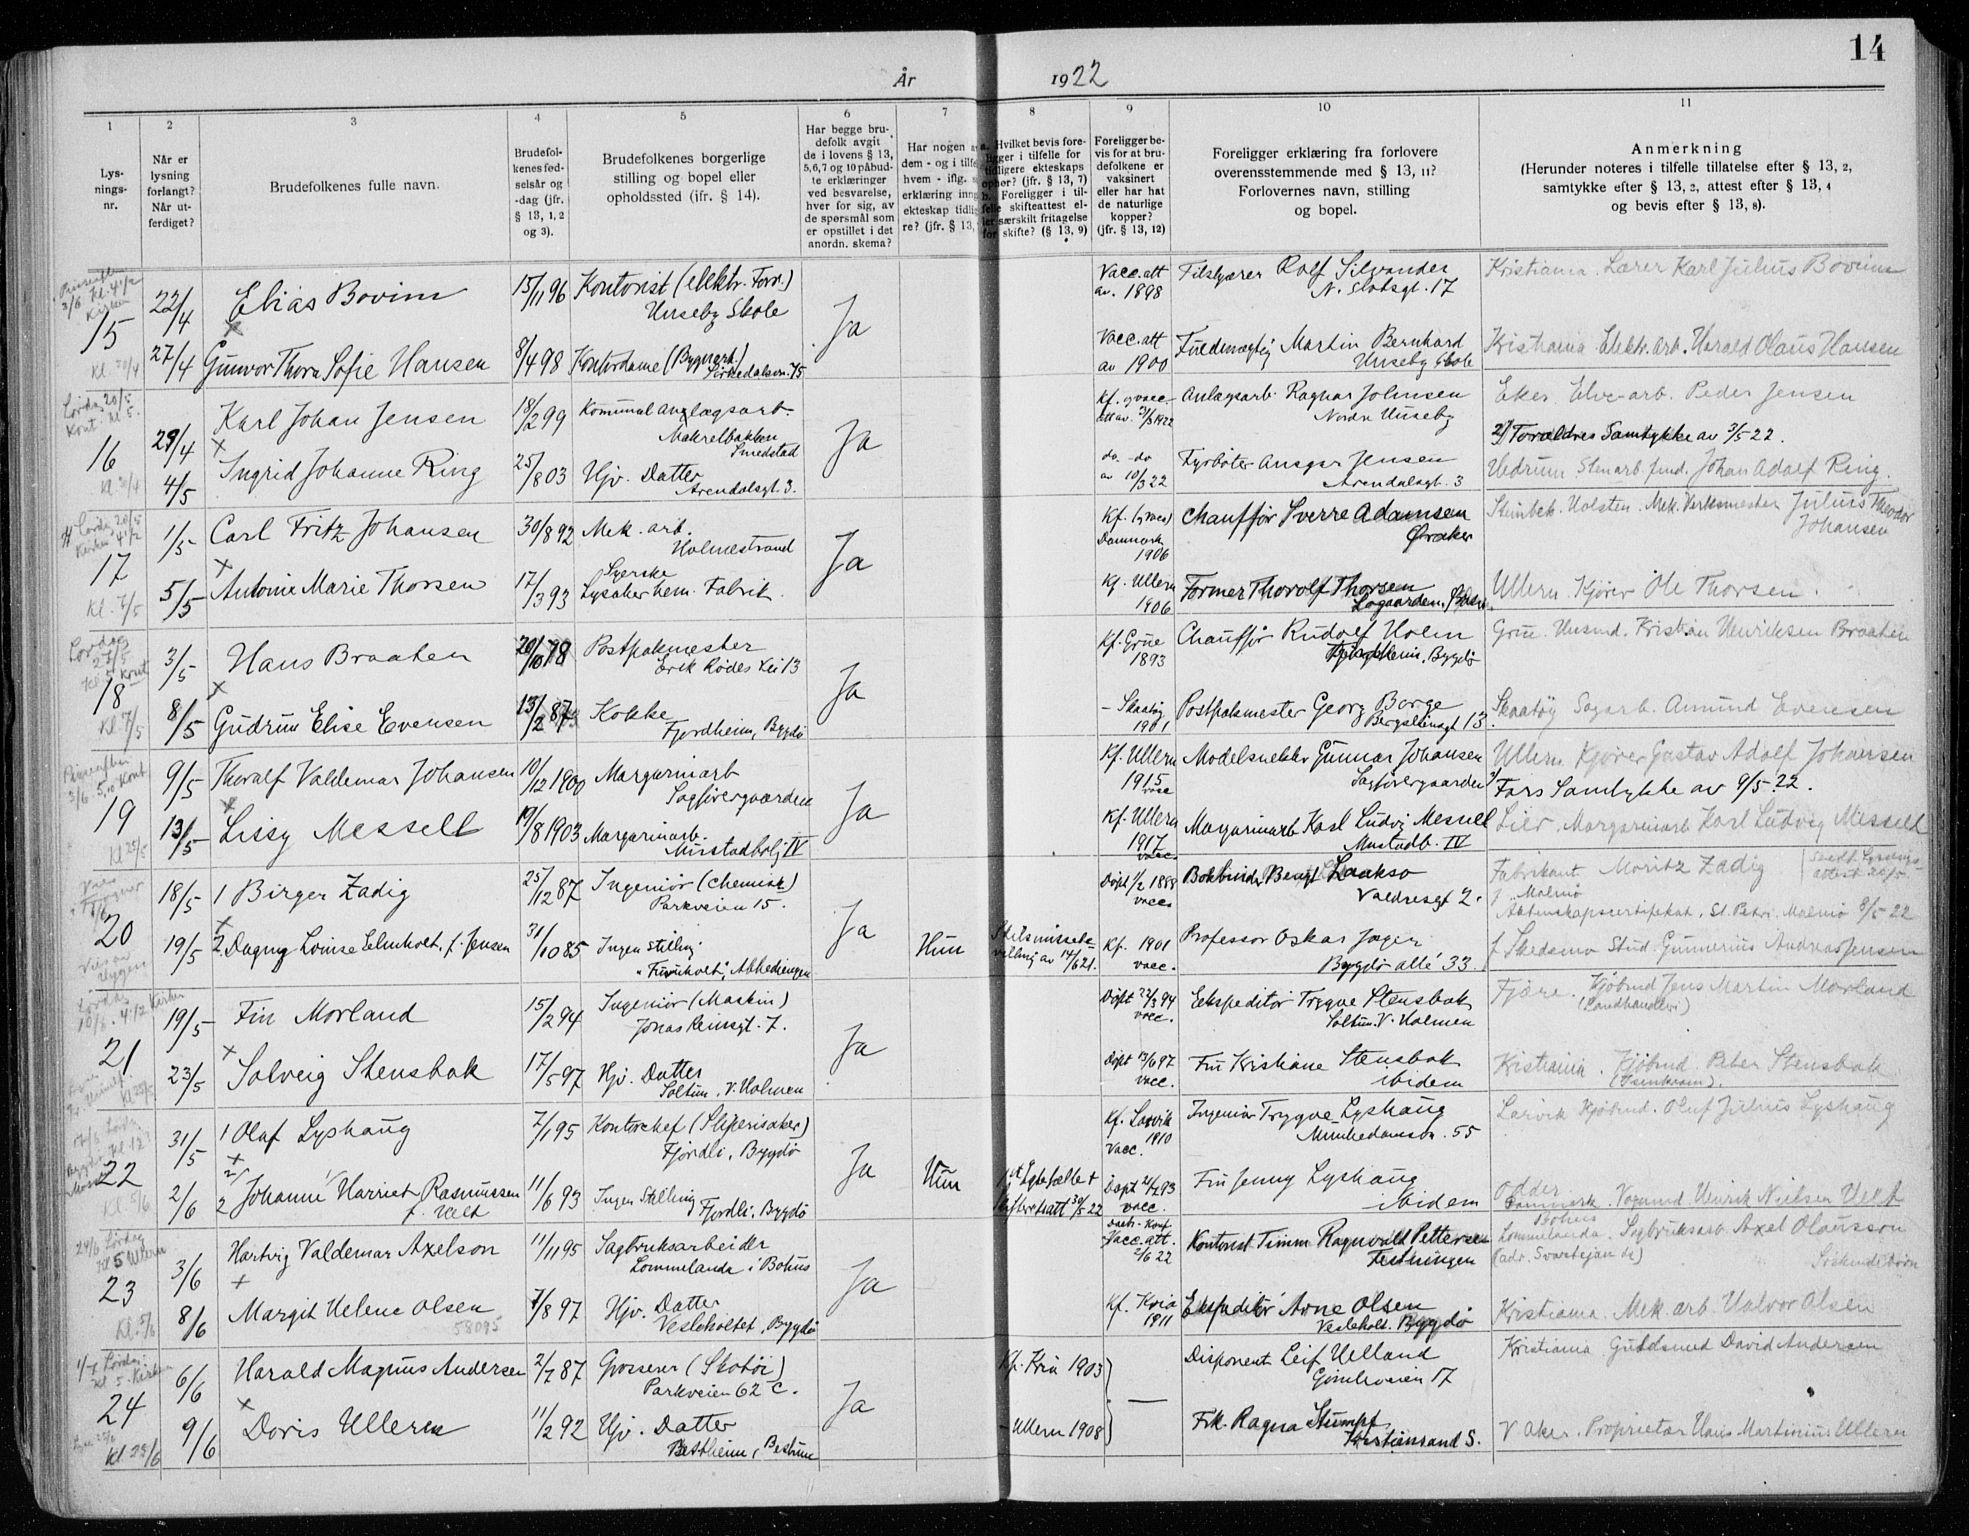 14
År 1922
1 2 3 4 5 6 7 8 9 10 11
Lys-
nings-
nr.
Når er
lysning
forlangt?
Når ut-
ferdiget?
Brudefolkenes fulle navn.
Brudefol-
kenes fød-
selsår og
-dag (jfr.
§ 13, 1, 2
og 3).
Brudefolkenes borgerlige
stilling og bopel eller
opholdssted (jfr. § 14).
Har begge bru-
defolk avgit
de i lovens § 13,
5, 6, 7 og 10 påbud-
te erklæringer
ved besvarelse,
hver for sig, av
de spørsmål som
er opstillet i det
anordn. skema?
Har nogen a
dem - og i tilfe
hvem - iflg. s
erklæring inng
ekteskap tidlig
re? (jfr. § 13,
a. Hvilket bevis fore-
ligger i tilfelle for
tidligere ekteskaps
ophør? (jfr. § 13, 7)
b. Foreligger i til-
felle skifteattest el-
ler særskilt fritagelse
for skifte? (§ 13, 9)
Foreligger be-
vis for at bru-
defolkene er
vaksinert
eller har hat
de naturlige
kopper?
(jfr. § 13, 12)
Foreligger erklæring fra forlovere
overensstemmende med § 13, 11?
Forlovernes navn, stilling
og bopel.
Anmerkning
(Herunder noteres i tilfelle tillatelse efter § 13, 2,
samtykke efter § 13, 2, attest efter § 13, 4
og bevis efter § 13, 8).
3/6 Kl. 4 1/2
Kirken
15
22/4
Elias Bovim
15/11 96
Kontorist (elektr. Forr.)
Ullseby Skole
Ja
Vacc. att
av. 1898
Rolf Silvander
N. Slotsgt. 17
Kristiania. Lærer Karl Julius Bovim
27/4
Gunvor Thora Sofie Hansen
8/4 98
Kontordame
Vacc. att
av 1900
Fuldmægtig Martin Bernhard
Ullseby Skole
Kristiania Elektr. arb. Harald Olaus Hansen
Lørdag 20/5
Kont. kl 5.
16
29/4
Karl Johan Jensen
18/2 99
Kommunal anlægsarb.
Makrelbakken
Smedstad
Ja
Anlægsarb. Ragnar Johnsen
Nordre Ullseby
Eker Elve-arb. Peder Jensen
2) Forældres Samtykke av 3/5 22.
4/5
Ingrid Johanne Ring
25/8 03
Hjv. Datter
Arendalsgt. 3.
do. - do
av 10/3 22
Fyrbøter Ansgar Jensen
Arendalsgt. 3
Hedrum Stenarb. Johan Adolf Ring.
Lørdag 20/5
Kirken 4 1/2
17
Kl. 7/5
1/5
Carl Fritz Johansen
30/8 92
Mek. arb.
Holmestrand
Ja
Danmark
1906
Chauffør Sverre Adamsen
Øraker
Mek. Verksmester Julius Theodor
Johansen
5/5
Antonie Marie Thorsen
17/3 93
Syerske
Lysaker kem. Fabrik.
Kf. Ullern
1906
Former Thorolf Thorsen
Ullern. Kjører Ole Thorsen.
18
Kl. 7/5
3/5
Hans Braaten
20/10 78
Postpakmester
Erik Rødes Vei 13
Ja
Kf. Grue
1893
Chauffør Rudolf Holm
Fjordheim, Bygdø
Grue. Husmd. Kristian Henriksen Braaten
8/5
Gudrun Elise Evensen
13/2 87
Kokke
Fjordheim, Bygdø
- Skaatøy
1901
Postpakmester Georg Berge
13.
Skaatøy Sagarb. Amund Evensen
3/6
19
Kl 25/5
9/5
Thoralf Valdemar Johansen
10/12 1900
Margarinarb
Sagførergaarden
Ja
Kf. Ullern
1915
vacc
Modelsnekker Gunnar Johansen
Sagførergaarden
Ullern Kjører Gustav Adolf Johansen
Fars Samtykke av 9/5 22.
13/5
Lissy Messelt
19/8 1903
Margarinarb.
Mustadbolj IV
Kf. Ullern
1917
vacc.
Margarinarb Karl Ludvig Messel
Mustadb. IV
Lier. Margarinarb Karl Ludvig Messelt
20
18/5
1 Birger Zadig
25/12 87
Ingeniør (Chemiker)
Parkveien 15.
Ja
Døpt 1/2 1888
vacc.
Bokbinder Bengt Laakso
Valdresgt 2.
Fabrikant Moritz Zadig
f. Malmø
Aktenskapscertifikat, St. Petri. Malmø 8/5 22
19/5
2 Dagny Louise Elmholt, f. Jensen
31/10 85
Ingen stilling
"Furuholt", Abbediengen
Hun
Skilsmissebe-
villing av 14/6 21.
Kf. 1901
vacc.
Professor Oskar Jæger
Bygdø allé 33.
f Skedsmo Stud. Gunnerius Andreas Jensen
Lørdag
10/6. 4 1/2 Kirken
21
19/5
Fin Morland
15/2 94
Ingeniør (Maskin)
Jonas Reinsgt. 7.
Ja
vacc.
Ekspeditør Trygve Stensbak
Soltun. V. Holmen
Fjære. Kjøbmd Jens Martin Morland
(Landhandler)
23/5
Solveig Stensbak
17/5 97
Hjv. Datter
Soltun, V. Holmen
Døpt 13/6 97
vacc.
Fru Kristiane Stensbak
ibidem
Kristiania. Kjøbmd. Peter Stensbak
(Isenkram).
22
Kl. 5/6
31/5
1 Olaf Lyshaug
7/1 95
Kontorchef (Sliperisaker)
Fjordli, Bygdø
Ja
Kf. Larvik
1910
Vacc.
Ingeniør Trygve Lyshaug
Munkedamsv. 55
Larvik Kjøbmd. Oluf Julius Lyshaug
2/6
2 Johanne Harriet Rasmussen
f. Veld
11/6 93
Ingen Stilling
Fjordli, Bygdø
Hun
Skifteretsatt 30/5 22
vacc.
Fru Jenny Lyshaug
ibidem
Odder
Danmark. Vognmd Henrik Nielsen
24/6 Lørdag
Kl 5 Ullern
23
Kl. 5/6
3/6
Hartvig Valdemar Axelson
11/11 95
Sagbruksarbeider
Lommelanda i Bohus
Ja
Vacc. att.
2/6 22
Kontorist Timm Ragnvald Pettersen
Festningen
Bohus
Lommelanda. Sagbruksarb. Axel Olausson
8/6
Margit Helene Olsen
58095
7/8 97
Hjv. Datter
Vesleholtet, Bygdø
Kf. Kria
1911
Ekspeditør Arne Olsen
Vesleholt. Bygdø
Kristiania. Mek. arb. Halvor Olsen
1/7 Lørdag
kl 5. Kirken
24
6/6
Harald Magnus Andersen
2/7 87
Grosserer (Skotøi)
Parkveien 62 c.
Ja
Kf. Kria 1903
Disponent Leif Helland
Gimleveien 17
Kristiania Guldsmed David Andersen
9/6
Doris Ullern
11/2 92
Hjv. Datter
Bestheim, Bestum
- Ullern 1908
Frk. Ragna Stumpf
Kristiansand S.
V Aker. Proprietær Hans Martinius Ullern